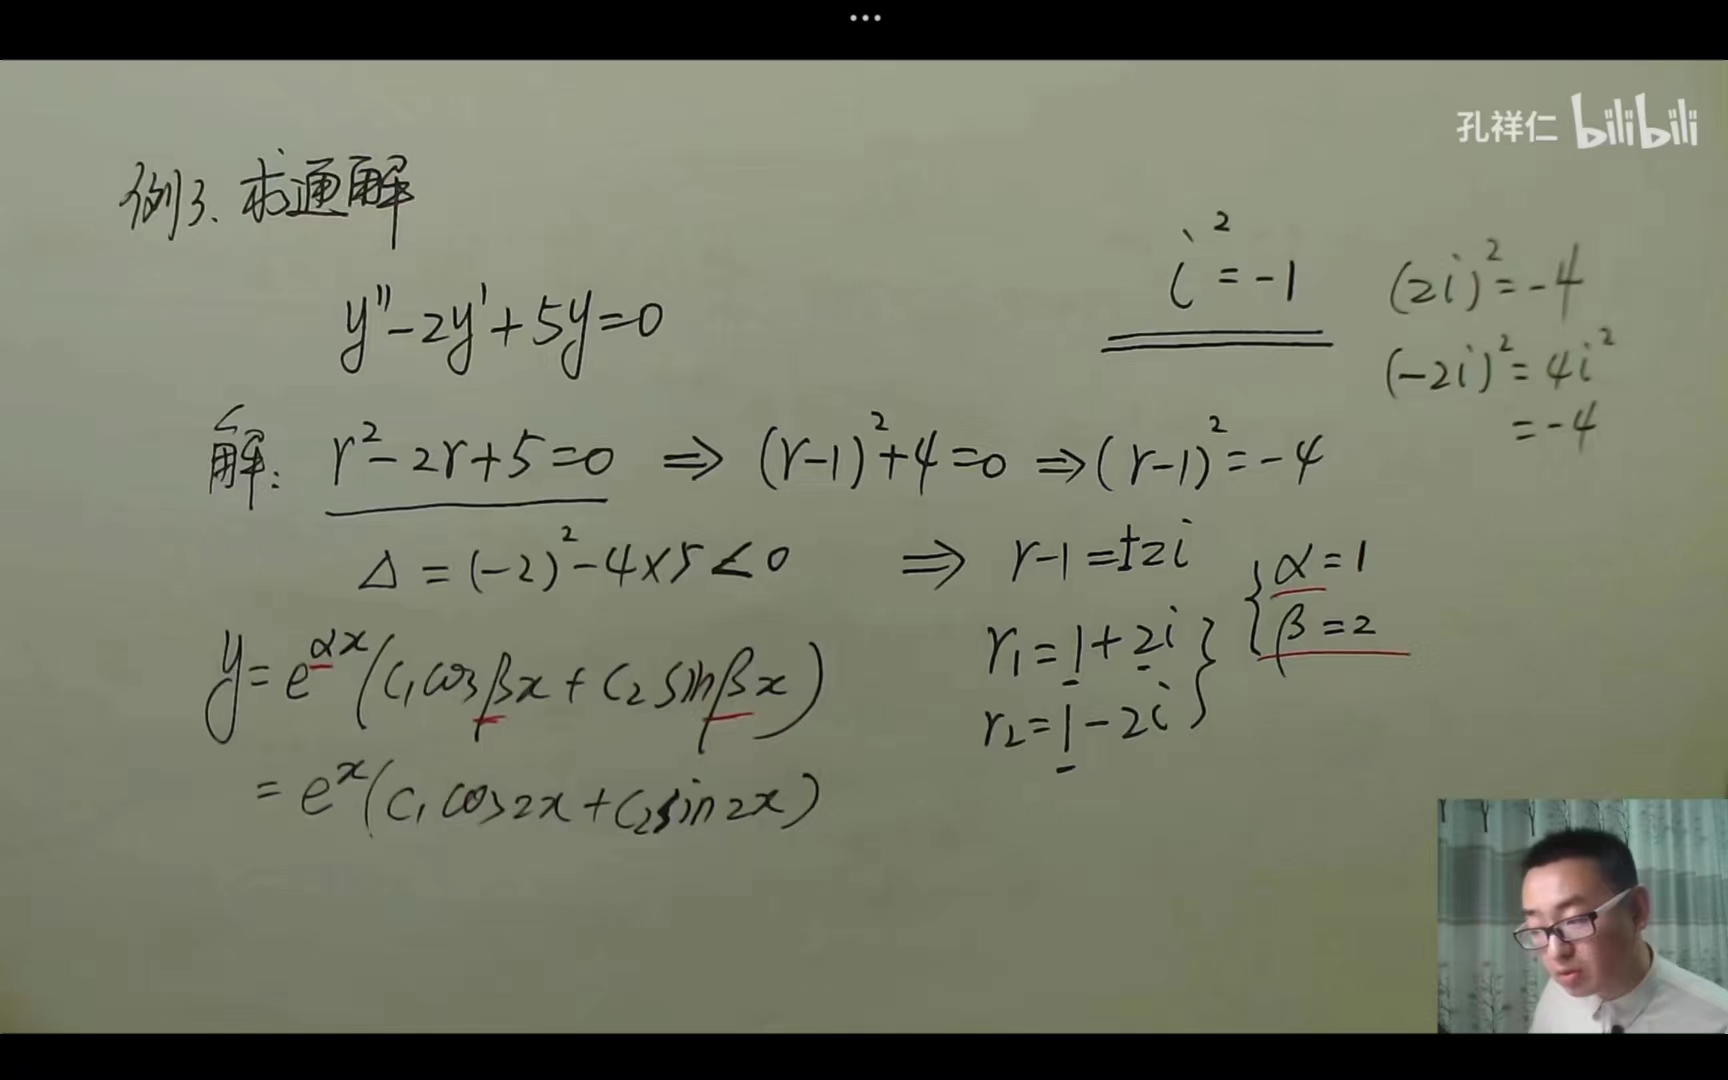 ...
孔祥仁 bilibili
例3. 求通解
y''-2y'+5y=0
i²=-1
(2i)²=-4
(-2i)²=4i²
=-4
解: r²-2r+5=0 ⇒ (r-1)²+4=0 ⇒ (r-1)²=-4
Δ=(-2)²-4×5<0 ⇒ r-1=±2i
r₁=1+2i
r₂=1-2i
α=1
β=2
y=e^{αx}(C₁cosβx+C₂sinβx)
=e^x(C₁cos2x+C₂sin2x)